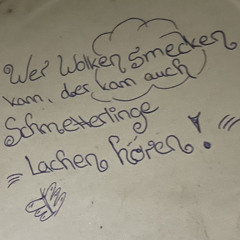 Wer Wolken smecken
kam, der kam auch
Schmetterlinge
"Lachen hören!"